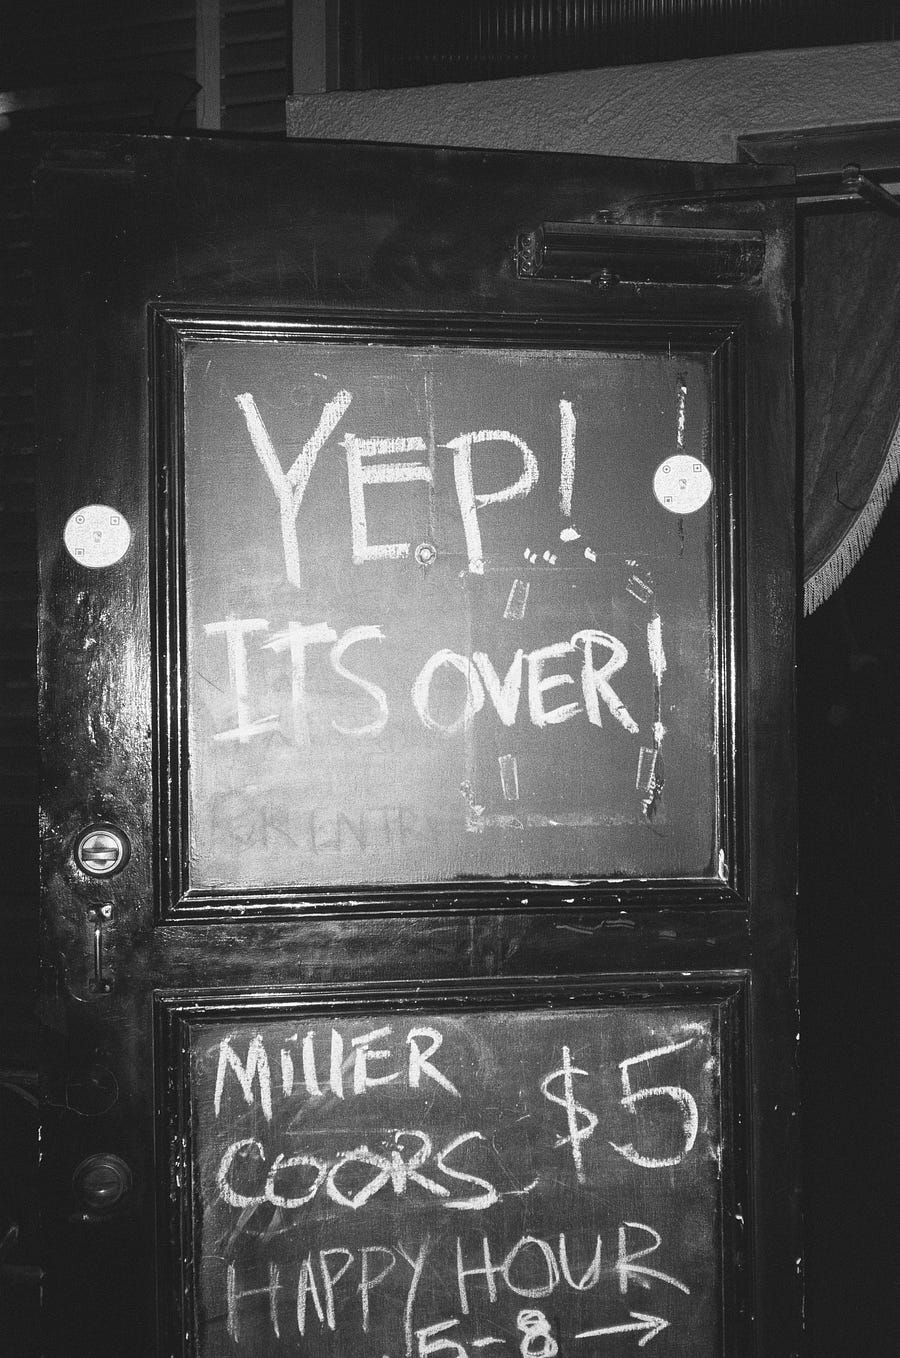 YEP!...
ITS OVER!
FOR ENTRY
MillER $5
COORS
HAPPY HOUR
5-8 →